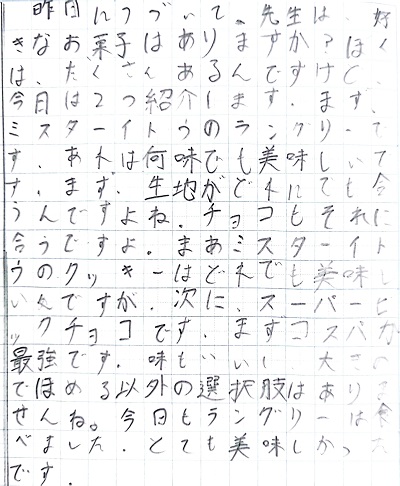 昨日につづいて、先生は、好
きなお菓子はありますか?ぼく
は、たくさんあるんですけど、
今日は2つ紹介します。まず、
ミスターイトウのラングリーで
す。あれは何味でも美味しいで
す。まず、生地がどれにても合
うんですよね。チョコもそれに
合うですよ。まあミスターイト
ウのクッキーはどれでも美味し
いんですが、次に、スーパービ
ックチョコです。まずコスパが
最強です。味もいいし 大きの
でほめる以外の選択肢はありま
せんね。今日もラングリーは食
べました。とても美味しかった
です。